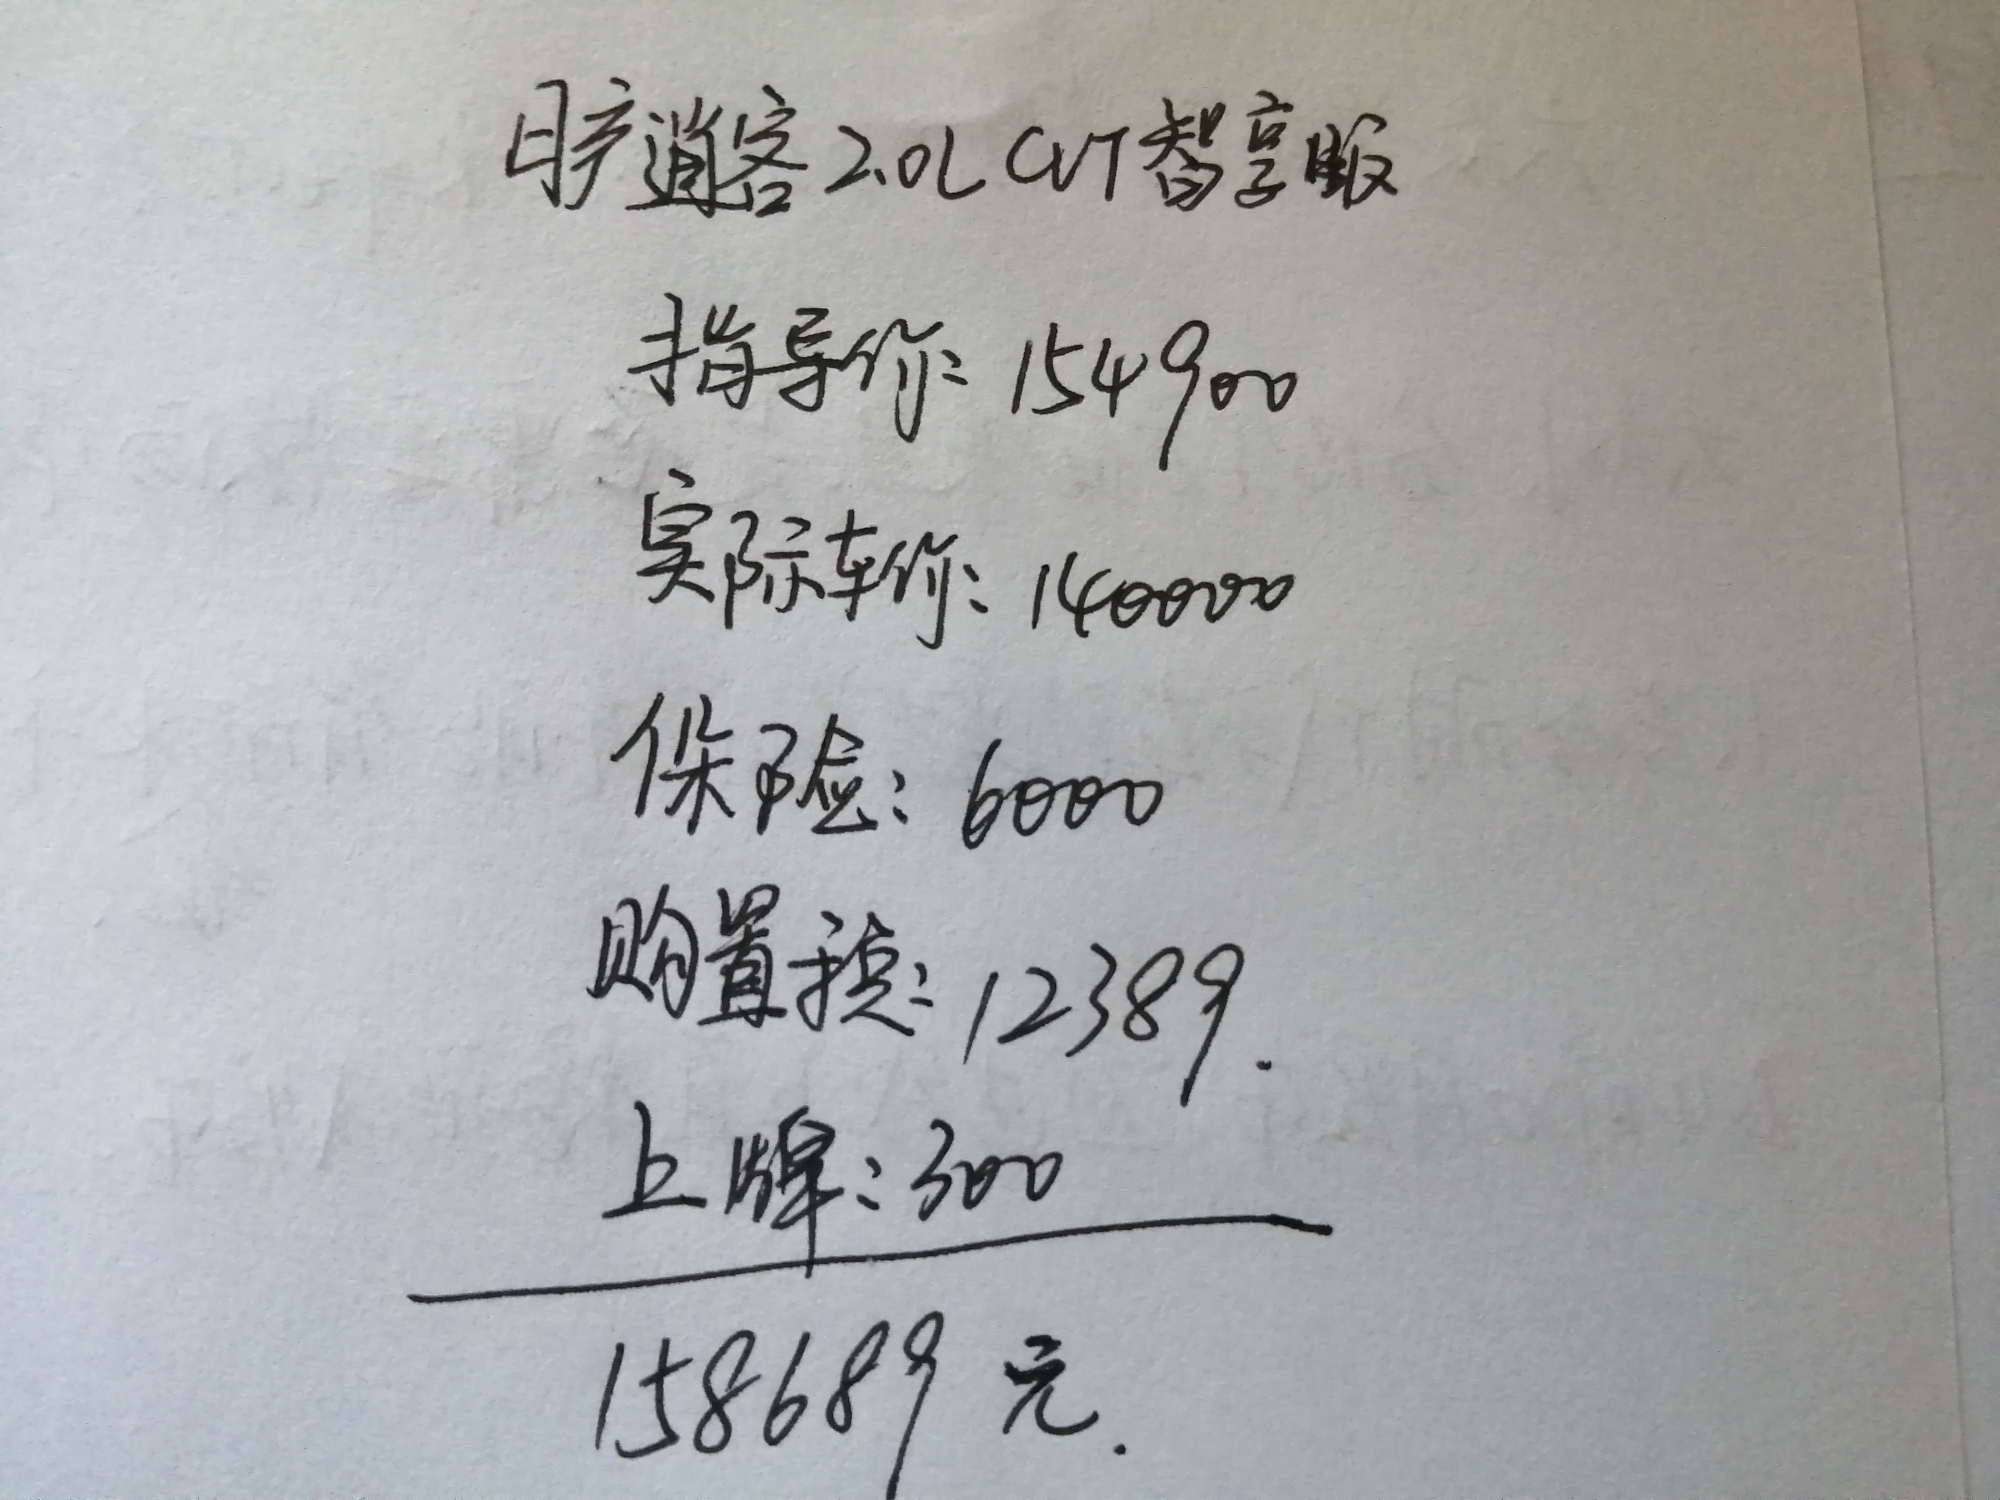 日产逍客2.0L CVT智享版
指导价:154900
实际车价:140000
保险:6000
购置税:12389.
上牌:300
158689元.